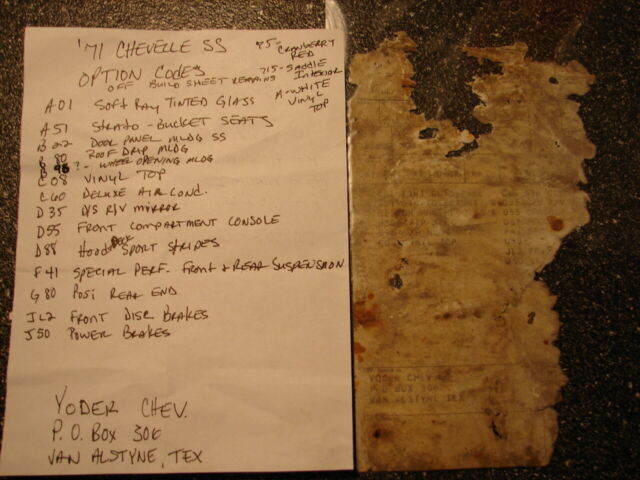 '71 CHEVELLE SS
OPTION CODES
OFF BUILD SHEET REMAINS
75- CRANBERRY
RED
715- SADDLE
INTERIOR
A- WHITE
VINYL
TOP
A01 SOFT RAY TINTED GLASS
A51 STRATO-BUCKET SEATS
DOOR PANEL MLDG SS
B 80 ROOF DRIP MLDG
? - WHEEL OPENING MLDG
C08 VINYL TOP
C60 DELUXE AIR COND.
D35 D/S R/V MIRROR
D55 FRONT COMPARTMENT CONSOLE
D88 HOOD DECK SPORT STRIPES
F41 SPECIAL PERF. FRONT & REAR SUSPENSION
G80 POSI REAR END
JL2 FRONT DISC BRAKES
J50 POWER BRAKES
YODER CHEV.
P.O. BOX 306
VAN ALSTYNE, TEX
YODER CHEV
P O BOX 306
VAN ALSTYNE TEX